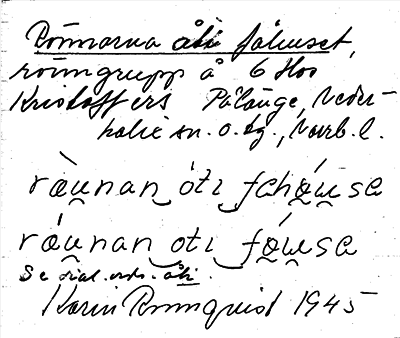 Rönnarna åti fähuset,
rönngrupp å 6 Hos
Kristoffers Pålänge, Neder-
kalix sn. o. tg., Norrb. l.
ràu̯nan óti fahǿu̯sa
ráu̯nan oti fǿu̯sa
Se dial. ordb. åti.
Karin Rönnquist 1945